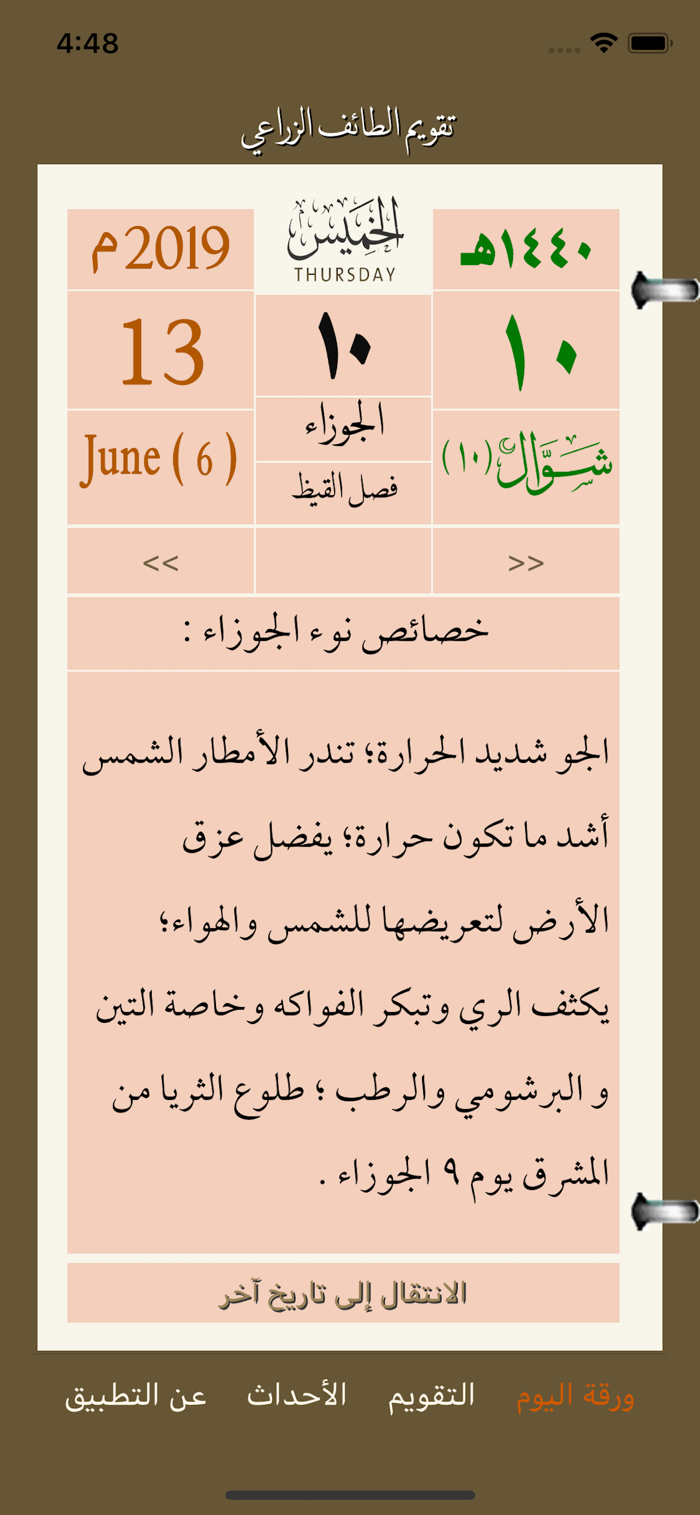 4:48
تقويم الطائف الزراعي
١٤٤٠هـ
الخميس
THURSDAY
2019 م
١٠
١٠
13
شوال (١٠)
الجوزاء
فصل القيظ
June ( 6 )
<< >>
خصائص نوء الجوزاء :
الجو شديد الحرارة؛ تندر الأمطار الشمس
أشد ما تكون حرارة؛ يفضل عزق
الأرض لتعريضها للشمس والهواء؛
يكثف الري وتبكر الفواكه وخاصة التين
و البرشومي والرطب ؛ طلوع الثريا من
المشرق يوم ٩ الجوزاء .
الانتقال إلى تاريخ آخر
ورقة اليوم التقويم الأحداث عن التطبيق